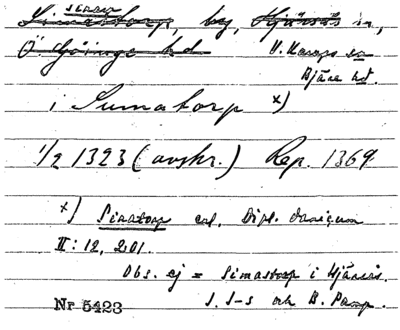 Simastorp, by, Hjärsås sn,
Ö Göinge hd V. Karups sn
Bjäre hd.
i Sumatorp x)
1/2 1323 (avskr.) Rep. 1369
x) Simatorp enl. Dipl. danicum
II: 12, 201.
Obs. ej = Simastorp i Hjärsås.
J. J-s och B. Pamp.
Nr 5423